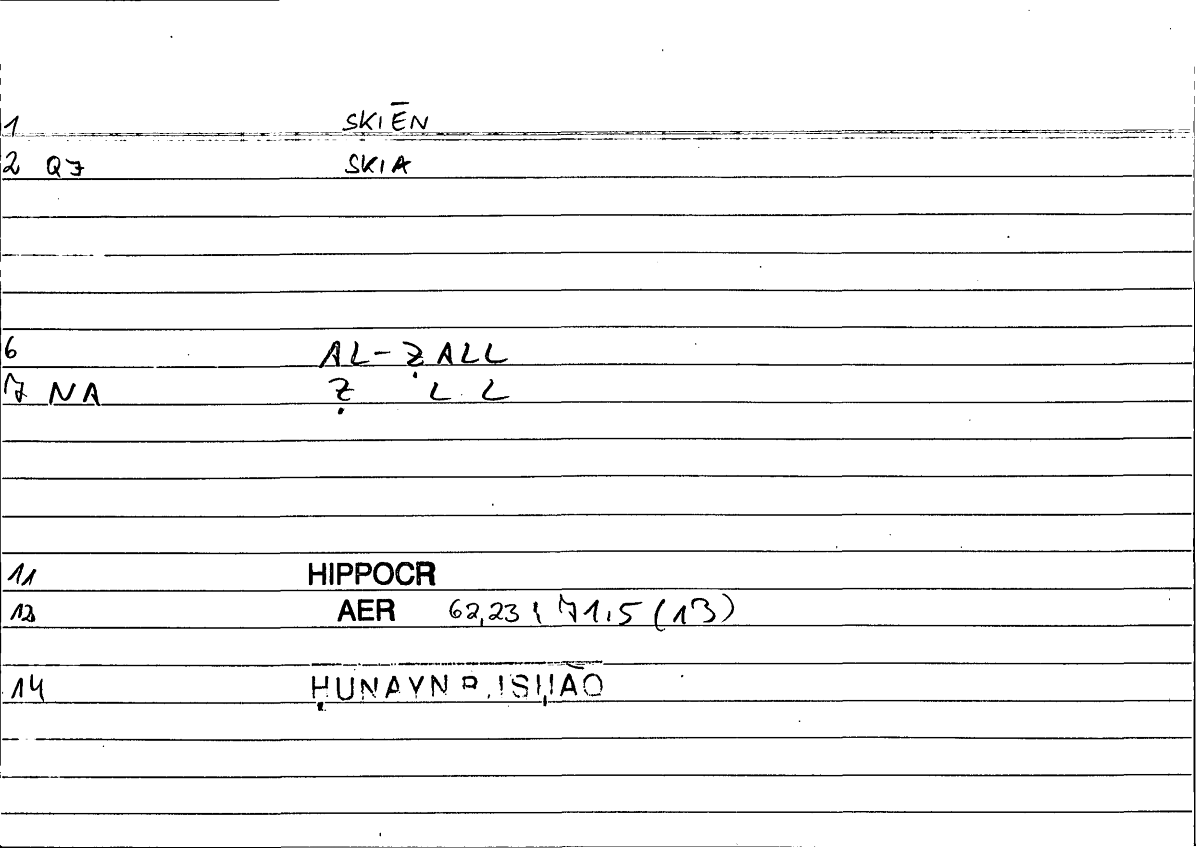 1 SKIĒN
2 Q7 SKIA
6 AL-ẒALL
7 NA Ẓ L L
11 HIPPOCR
12 AER 62,23 ; 71,5 (13)
14 ḤUNAYN B. ISḤĀQ